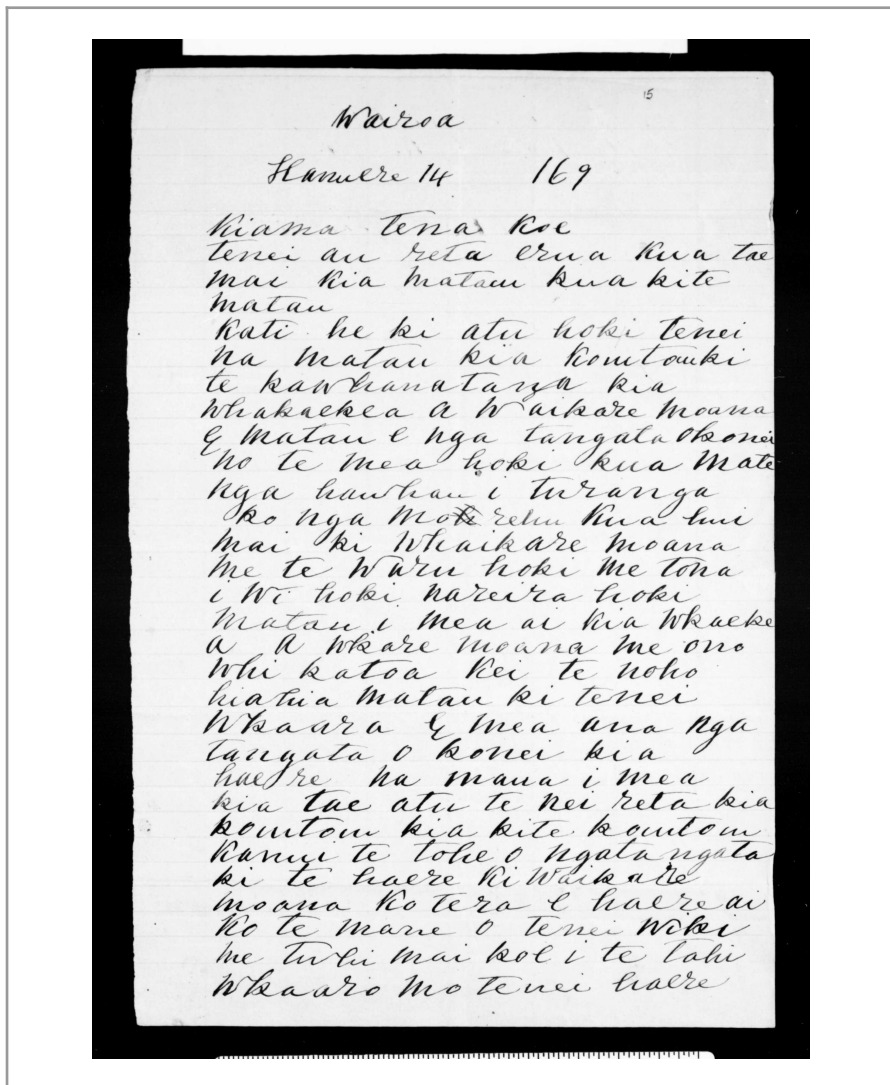 15
Wairoa
Hanuere 14 169
Kiama tena koe
tenei au reta erua kua tae
mai kia matau kua kite
matau
Kati he ki atu hoki tenei
na matau kia Komtouki
te kawhanatanga kia
whakaekea a Waikare moana
E matau e nga tangata okonei
no te mea hoki kua mate
nga hauhau i turanga
ko nga morehu kua hui
mai ki Whaikare moana
me te Waru hoki me tona
i wi hoki nareira hoki
matau i mea ai kia wkaeke
a a wkare moana me ono
whi katoa kei te noho
hiahia matau ki tenei
wkaara E mea ana nga
tangata o konei kia
haere na maua i mea
kia tae atu te nei reta kia
komtom kia kite komtom
Kanui te tohe o ngata ngata
ki te haere ki Waikare
moana Ko tera e haere ai
ko te mane o tenei wiki
me tuhi mai koe i te tahi
wkaaro mo tenei haere